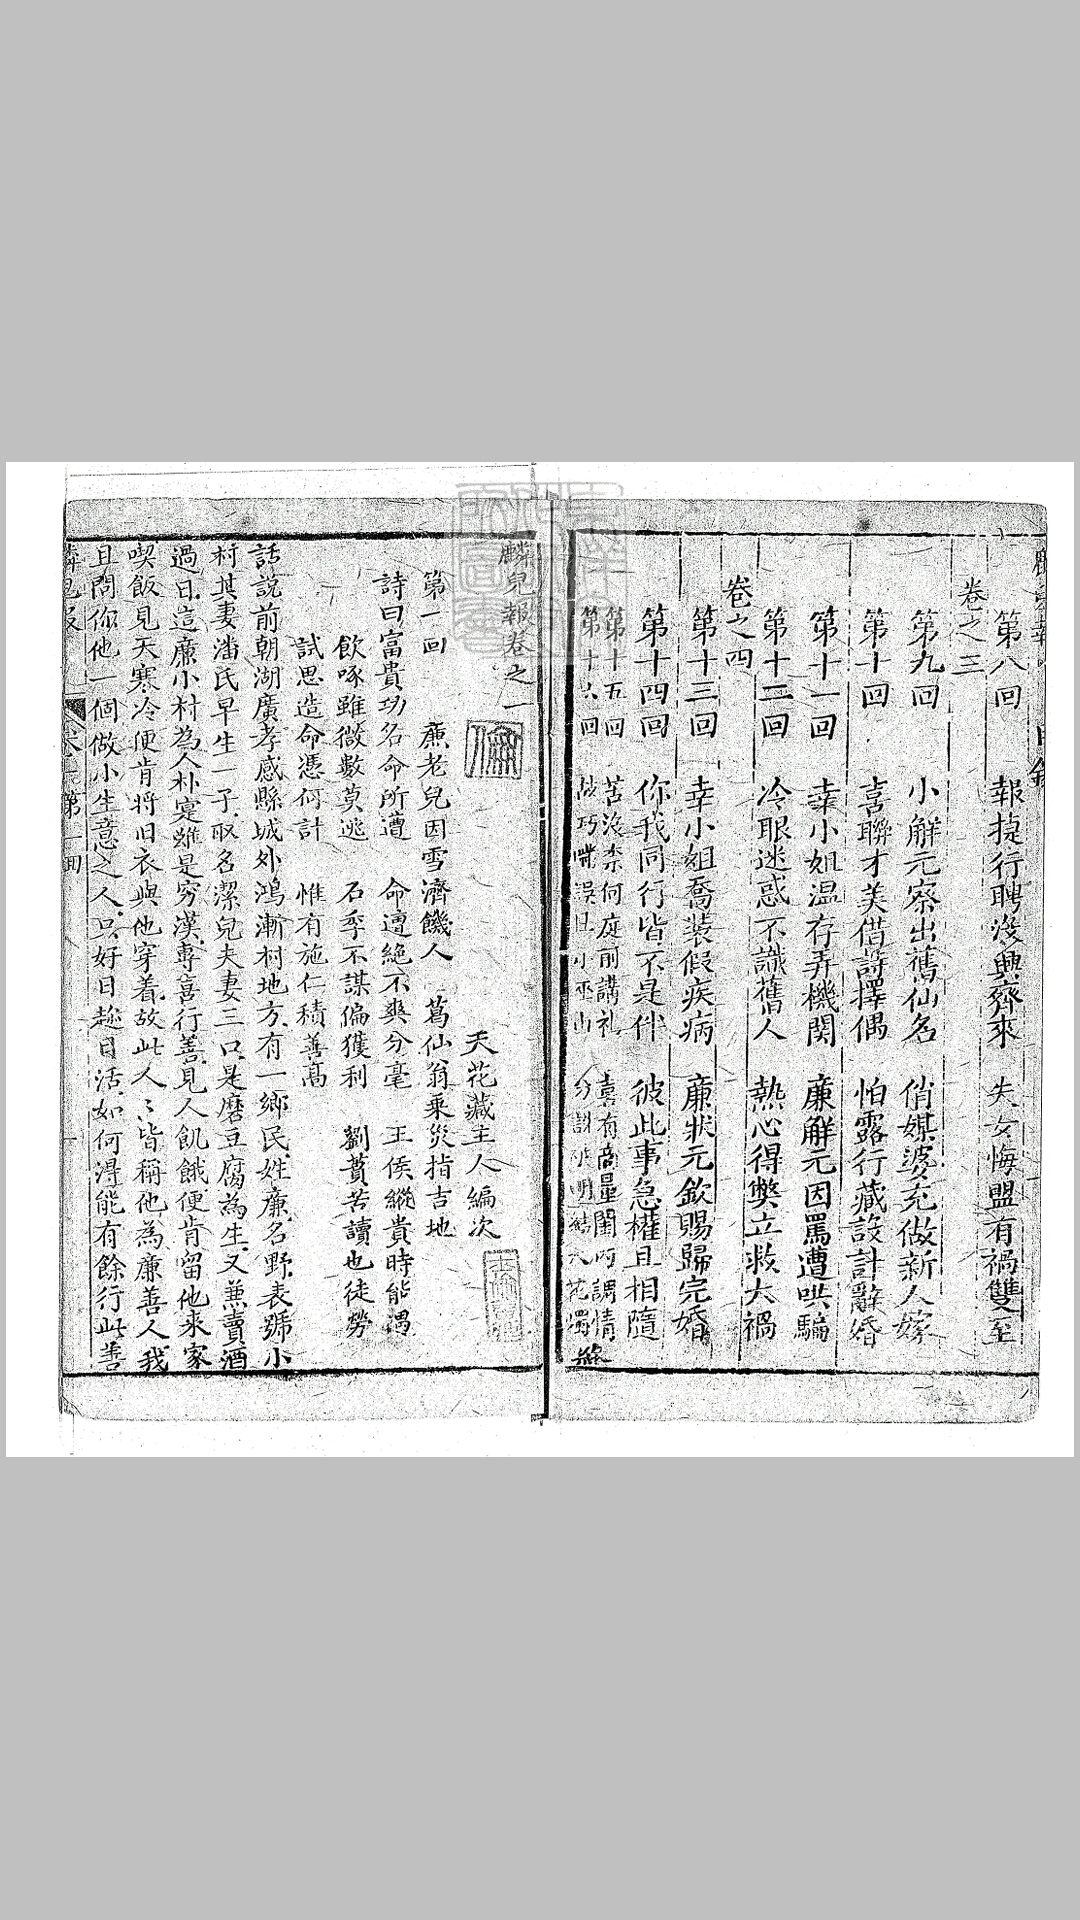 第八回 報捷行聘後興齊來 失女悔盟有禍雙至
卷之三
第九回 小解元察出舊仙名 俏媒婆充做新人嫁
第十回 喜聯才美借詩擇偶 怕露行藏設計辭婚
第十一回 幸小姐温存弄機関 廉解元因罵遭哄騙
第十二回 冷眼迷惑不識舊人 熱心得獘立救大禍
卷之四
第十三回 幸小姐喬装假疾病 廉狀元欽賜歸完婚
第十四回 你我同行皆不是伴 彼此事急權且相隨
第十五回 苦沒柰何庭前講礼 喜有商量閨內調情
第十六回
麟兒報卷之一
天花藏主人編次
第一回 廉老兒因雪濟饑人 葛仙翁乘災指吉地
詩曰富貴功名命所遭 命遭絕不爽分毫 王侯縱貴時能遇
飲啄雖微數莫逃 石季不謀偏獲利 劉蕡苦讀也徒勞
試思造命憑何計 惟有施仁積善高
話說前朝湖廣孝感縣城外鴻漸村地方有一鄉民姓廉名野表號小
村其妻潘氏早生一子取名潔兒夫妻三口是磨豆腐為生又兼賣酒
過日這廉小村為人朴寔雖是穷漢專喜行善見人飢餓便肯留他來家
喫飯見天寒冷便肯將旧衣與他穿着故此人〻皆稱他為廉善人我
且問你他一個做小生意之人只好日趂日活如何淂能有餘行此善
第一回